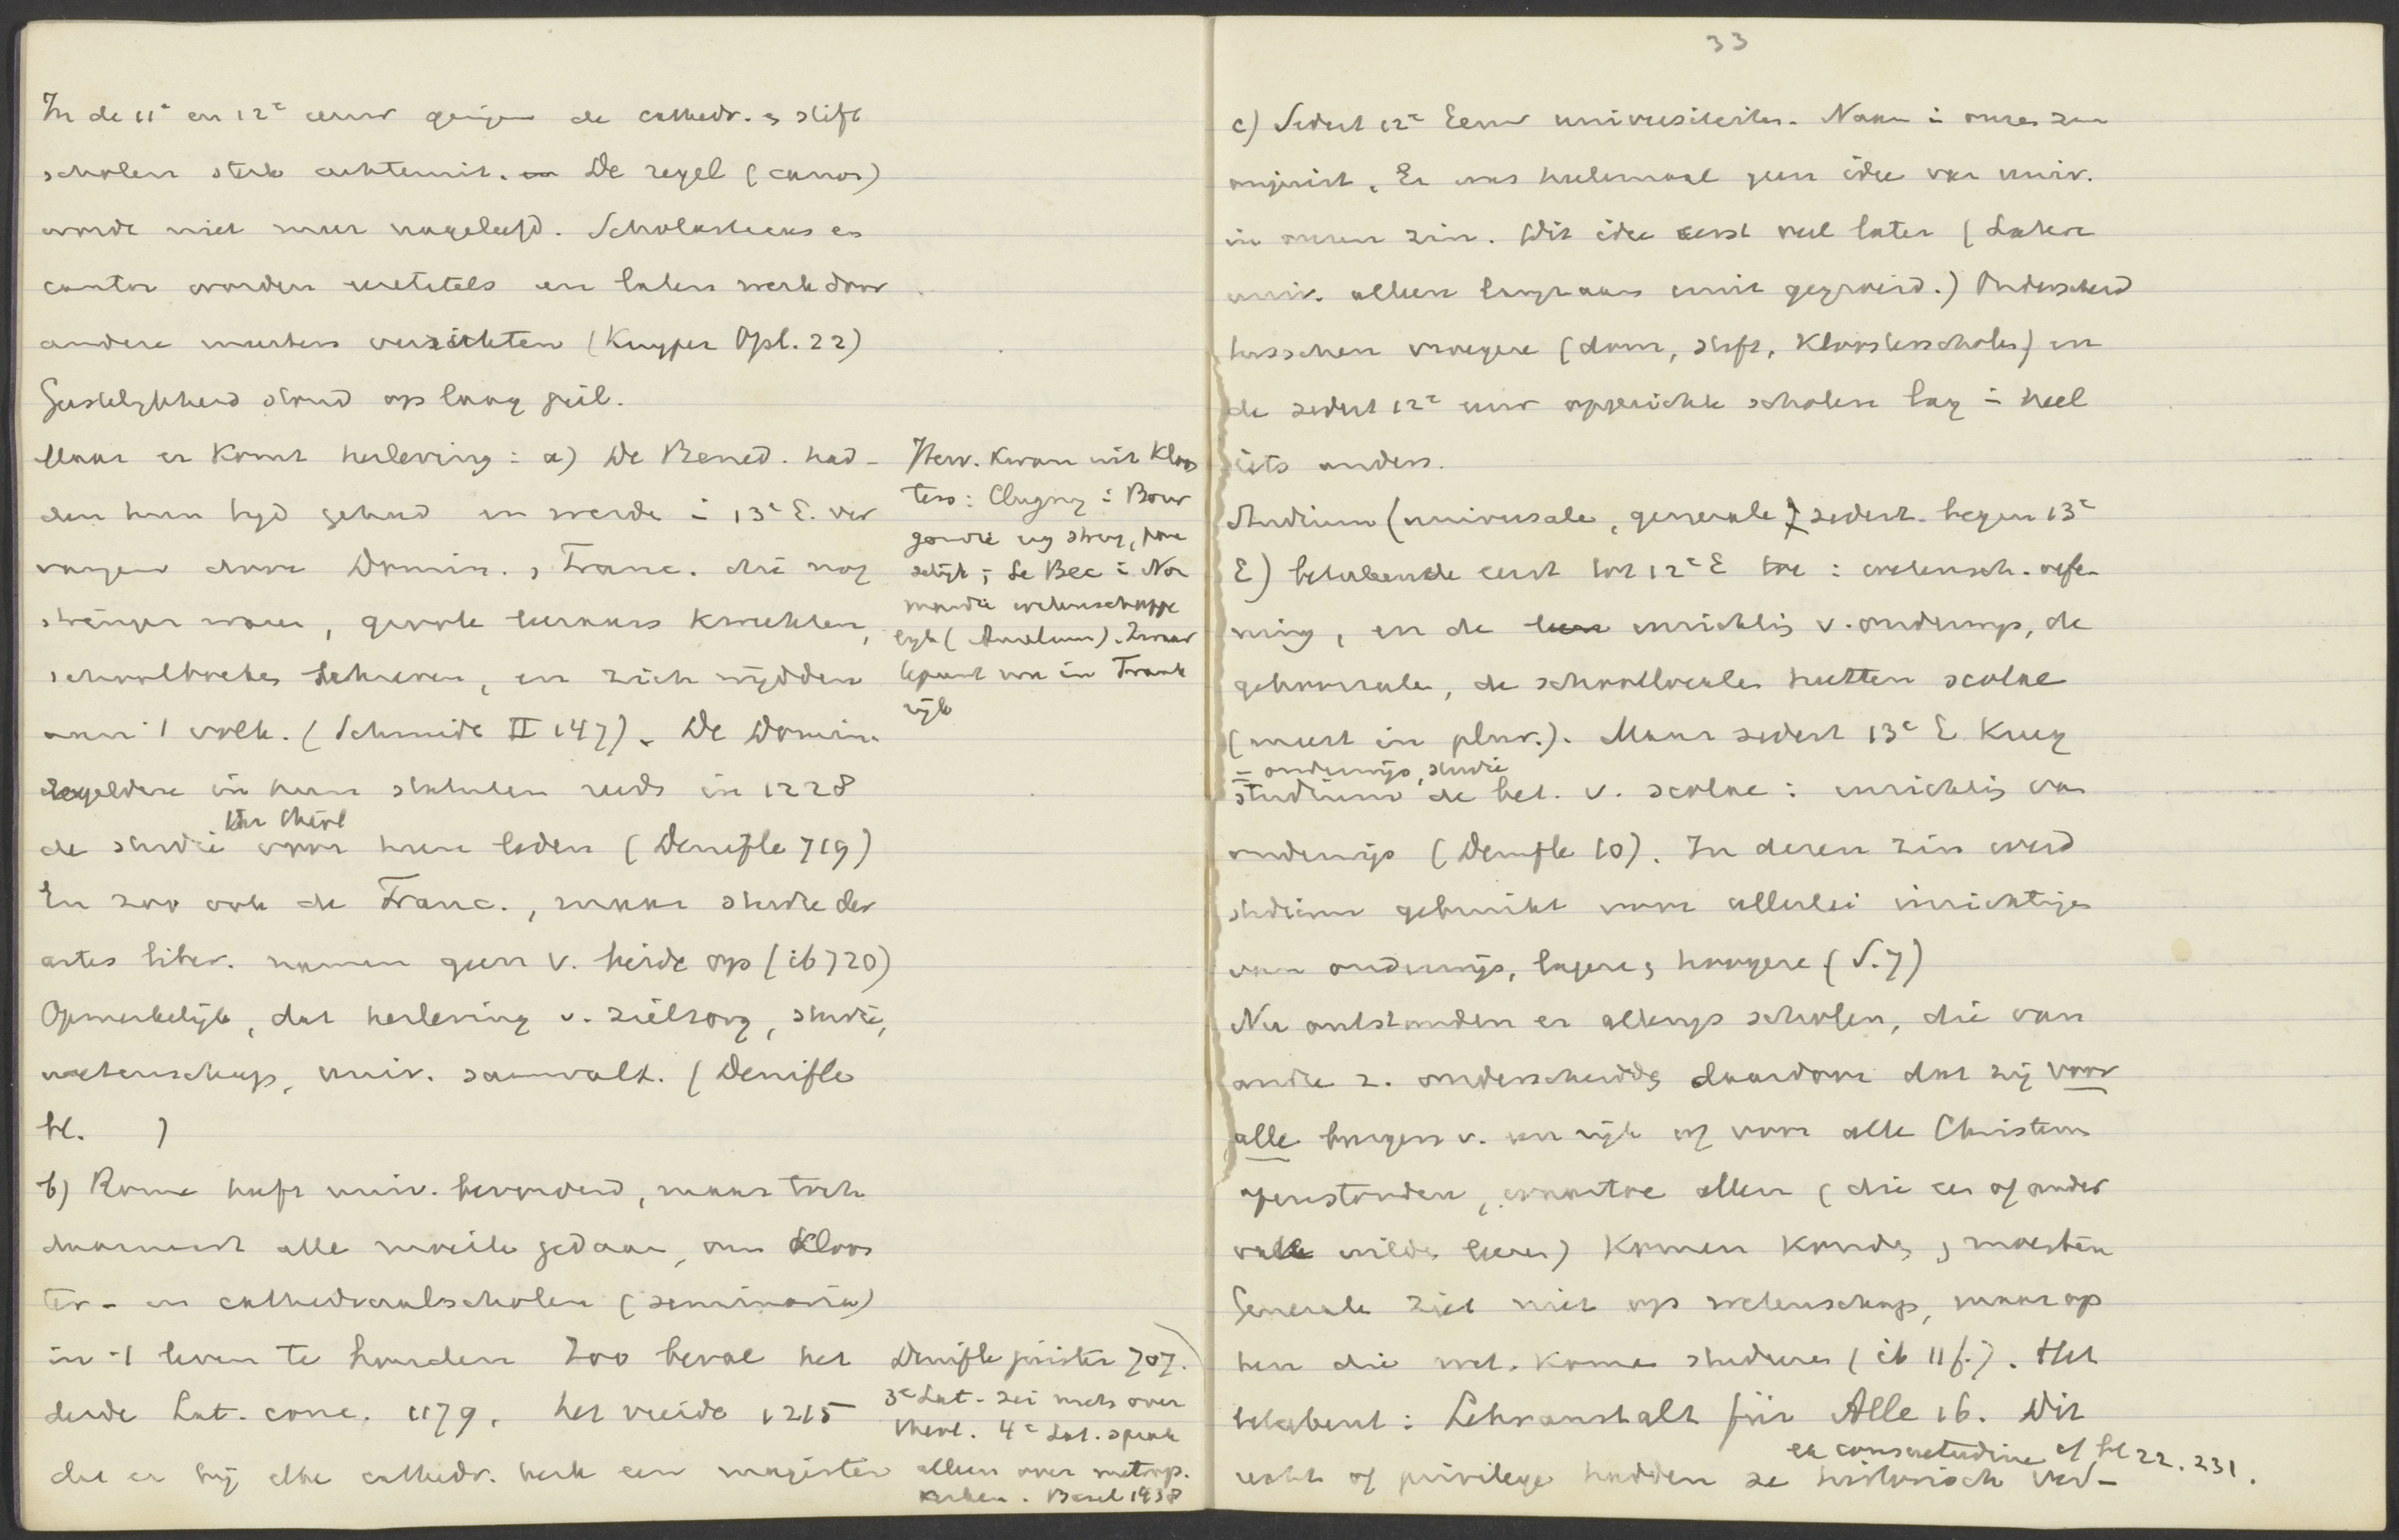 In de 11e en 12e eeuw gingen de cathedr. & stift
scholen sterk achteruit. De regel (canon)
worde niet meer nageleefd. Scholasticus en
cantor worden eretitels en laten werk door
andere meesters verrichten (Kuyper Opl. 22)
Geestelijkheid stond op laag peil.
Maar er komt herleving: a) De Bened. had-
den hun tijd gehad en werde i 13e E. ver
vangen door Domin. & Franc. die nog
strenger waren, groote leeraars kweekten,
schoolboeken schreven, en zich wijdden
aan 't volk. (Schmidt II 147). De Domin.
regelden in hun statuten reeds in 1228
de studie der theol voor hun leden (Denifle 719)
En zoo ook de Franc., maar studie der
artes liber. namen geen v. beide op (ib 720)
Opmerkelijk, dat herleving v. zielzorg, studie,
wetenschap, univ. samenvalt. (Denifle
bl. )
b) Rome heeft univ. bevorderd, maar toch
daarnaast alle moeite gedaan, om kloos
ter- en cathedraalscholen (seminaria)
in 't leven te houden Zoo beval het
derde Lat. conc. 1179, het vierde 1215
dat er bij elke cathedr. kerk een magister
Herv. kwam uit kloos
ters: Clugny i Bour
gondië
streng,
; Le Bec i Nor
mandië wetenschappe
lijk (Anselmus). Zwaar
tepunt was in Frank
rijk
Denifle priester 707.)
3e Lat. zei niets over
theol. 4e Lat. sprak
alleen over metrop.
kerken. Basel 1438
33
c) Sedert 12e Eeuw universiteiten. Naam i onzen zin
onjuist. Er was heelemaal geen idee van univ.
in onzen zin. Dit idee eerst veel later (Latere
univ. alleen langzaam uit gegroeid.) Onderscheid
tusschen vroegere (dom, stift, kloosterscholen) en
de sedert 12e eeuw opgerichte scholen lag i heel
iets anders.
Studium (universale, generale) sedert begin 13e
E) beteekende eerst tot 12e E toe: wetensch. oefe-
ning, en de inrichting v. onderwijs, de
gehoorzale, de schoollocalen heetten scolae
(meest in plur.). Maar sedert 13e E. kreeg
= onderwijs, studie
studium de bet. v. scolae: inrichting van
onderwijs (Denifle 10). In dezen zin werd
studium gebruikt voor allerlei inrichtingen
van onderwijs, lagere & hoogere (S. 7)
Nu ontstonden er allengs scholen, die van
andre z. onderscheidde, daardoor dat zij voor
alle burgers v. een rijk of voor alle Christenen
openstonden, waartoe allen (die een of ander
vak wilde leeren) komen konden, & moesten
Generale ziet niet op wetenschap, maar op
hen die wet. komen studeeren (ib 11f.). Het
beteekent: Lehranstalt für Alle 16. Dit
ex consuetudine cf bl 22. 231.
recht of privilege hadden ze historisch ver-